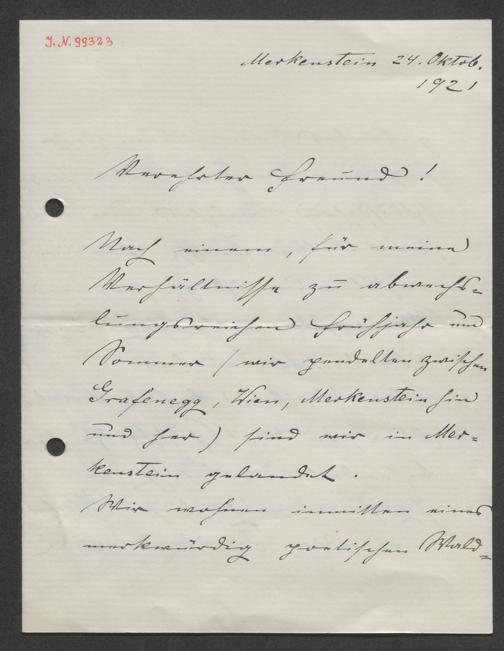 J.N. 99323
Merkenstein 24. Oktob.
1921
Verehrter Freund!
Nach einem, für meine
Verhältnisse zu abwechs-
lungsreichen Frühjahr und
Sommer (wir pendelten zwischen
Grafenegg, Wien, Merkenstein hin
und her) sind wir in Mer-
kenstein gelandet.
Wir wohnen inmitten eines
merkwürdig poetischen Wald-